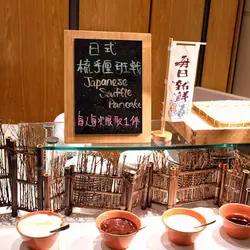 日式
梳乎厘班戟
Japanese
Souffle
Pancake
每人每次限取1件
每日新鮮